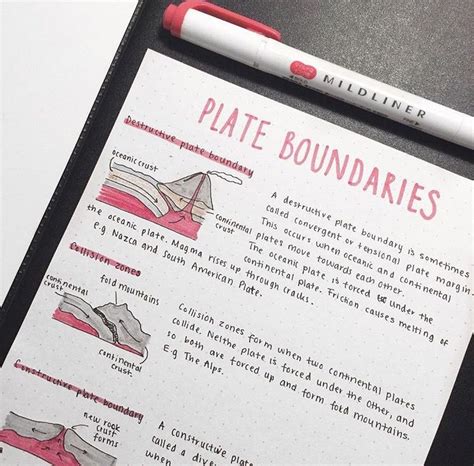 MILDLINER
PLATE BOUNDARIES
Destructive plate boundary
oceanic crust
continental
crust
A destructive plate boundary is sometimes
called convergent or tensional plate margin.
This occurs when oceanic and continental
plates move towards each other.
The oceanic plate is forced under the
continental plate. Friction causes melting of
the oceanic plate. Magma rises up through cracks.
E.g. Nazca and South American Plate.
Collision zones
fold mountains
continental
crust
continental
crust.
Collision zones form when two continental plates
collide. Neithe plate is forced under the other, and
so both are forced up and form fold mountains.
E.g The Alps.
Constructive plate boundary
new rock
crust
forms
A constructive plate
called a dive
when